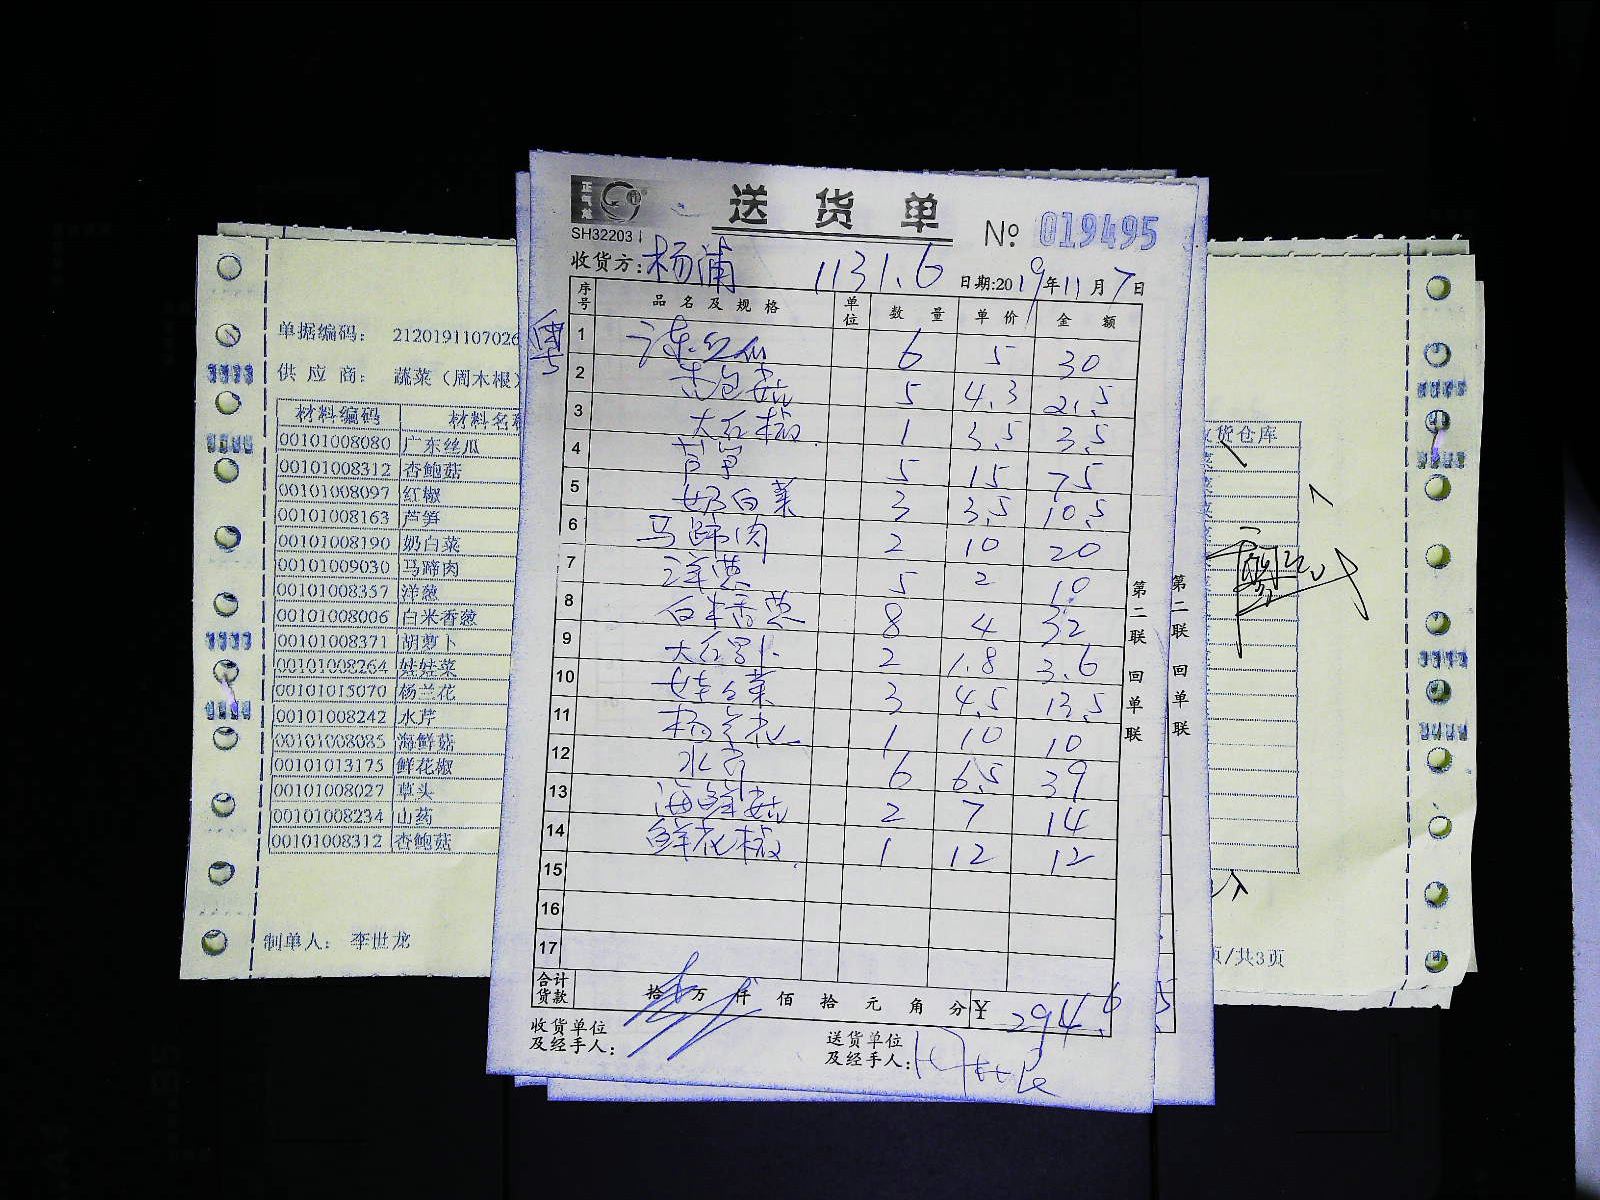 正气龙
送货单
SH32203
№ 019495
收货方: 杨浦 1131.6 日期:2019年11月7日
粤
序号 品名及规格 单位 数量 单价 金额
1 6 5 30
2 杏包菇 5 4.3 21.5
3 大红椒 1 3.5 3.5
4 芦笋 5 15 75
5 奶白菜 3 3.5 10.5
6 马蹄肉 2 10 20
7 洋葱 5 2 10
8 白米香葱 8 4 32
9 大红罗卜 2 1.8 3.6
10 娃娃菜 3 4.5 13.5
11 杨兰花 1 10 10
12 水芹 6 6.5 39
13 海鲜菇 2 7 14
14 鲜花椒 1 12 12
15
16
17
合计货款 拾 万 仟 佰 拾 元 角 分 ¥ 294.6
收货单位及经手人:
送货单位及经手人:
第二联 回单联
第二联 回单联
5
单据编码: 2120191107026
供应商: 蔬菜(周木根)
材料编码 材料名
00101008080 广东丝瓜
00101008312 杏鲍菇
00101008097 红椒
00101008163 芦笋
00101008190 奶白菜
00101009030 马蹄肉
00101008357 洋葱
00101008006 白米香葱
00101008371 胡萝卜
00101008264 娃娃菜
00101015070 杨兰花
00101008242 水芹
00101008085 海鲜菇
00101013175 鲜花椒
00101008027 草头
00101008234 山药
00101008312 杏鲍菇
制单人: 李世龙
货仓库
页/共3页